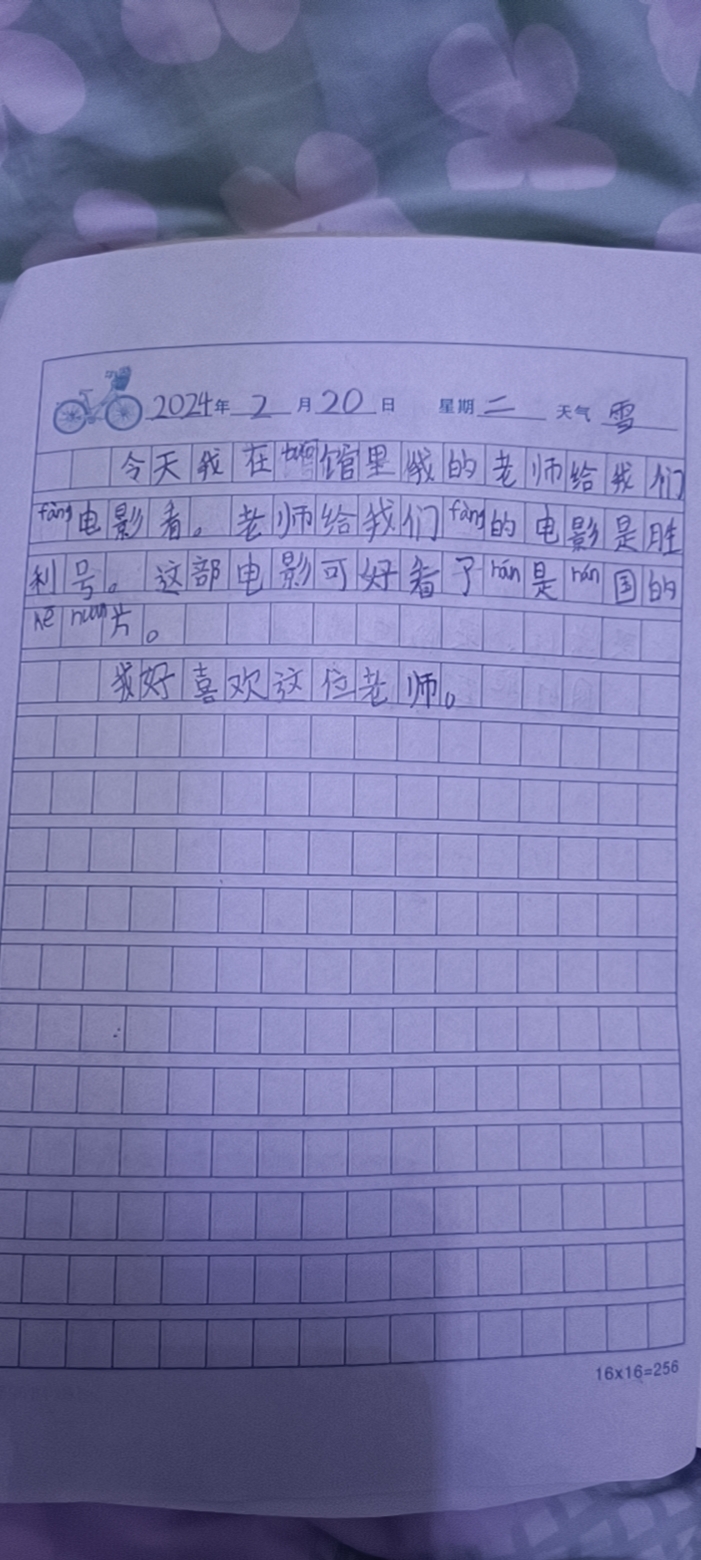 2024年2月20日 星期二 天气雪
今天我在tuō馆里我的老师给我们
fàng电影看。老师给我们fàng的电影是胜
利号。这部电影可好看了rán是rán国的
kē huàn片。
我好喜欢这位老师。
16x16=256